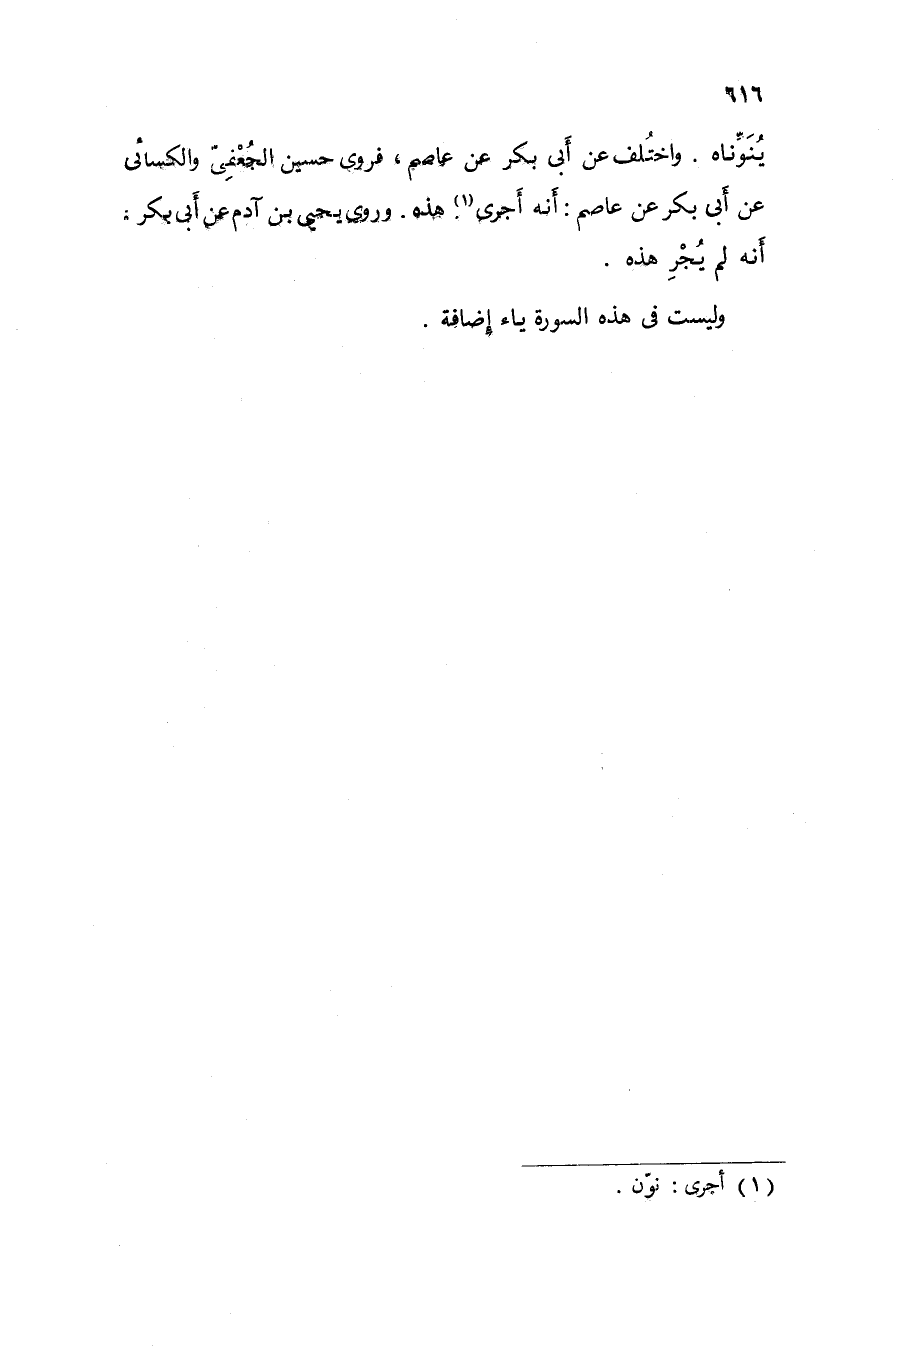 ٦١٦
يُنَوِّناه . واختُلف عن أَبى بكر عن عاصم ، فروى حسين الجُعْفِىّ والكسائى
عن أَبى بكر عن عاصم : أَنه أَجرى (١) هذه . وروى يحيى بن آدم عن أَبى بكر :
أَنه لم يُجْرِ هذه .
وليست فى هذه السورة ياء إِضافة .
(١) أَجرى : نوّن .